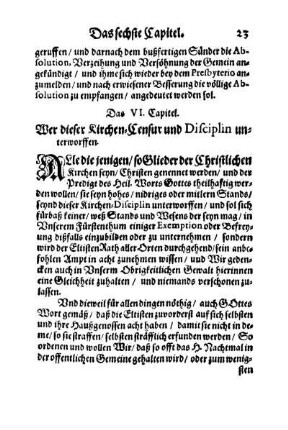 Das sechste Capitel. 23
geruffen / und darnach dem bußfertigen Sünder die Ab-
solution, Verzeihung und Versöhnung der Gemein an-
gekündigt / und ihme sich wieder bey dem Presbyterio an-
zumelden / und nach erwiesener Besserung die völlige Ab-
solution zu empfangen / angedeutet werden sol.
Das VI. Capitel.
Wer dieser Kirchen-Censur und Disciplin un-
terworffen.
Alle die jenigen / so Glieder der Christlichen
Kirchen seyn / Christen genennet werden / und der
Predigt des Heil. Worts Gottes theilhafftig wer-
den wollen / sie seyn hohes / nidriges oder mitlern Stands /
seynd dieser Kirchen-Disciplin unterworffen / und sol sich
fürbaß keiner / weß Stands und Wesens der seyn mag / in
Unserem Fürstenthum einiger Exemption oder Befrey-
ung dißfalls einzubilden oder zu unternehmen / sondern
wird der Eltisten Rath aller Orten durchgehend / sein anbe-
fohlen Ampt in acht zunehmen wissen / und Wir geden-
cken auch in Unserm Obrigkeitlichen Gewalt hierinnen
eine Gleichheit zuhalten / und niemands verschonen zu-
lassen.
Und dieweil für allen dingen nöthig / auch GOttes
Wort gemäß / daß die Eltisten zuvorderst auf sich selbsten
und ihre Haußgenossen acht haben / damit sie nicht in de-
me / so sie straffen / selbsten sträfflich erfunden werden / So
ordenen und wollen Wir / daß so offt das H. Nachtmal in
der offentlichen Gemeine gehalten wird / oder zum wenig-
sten